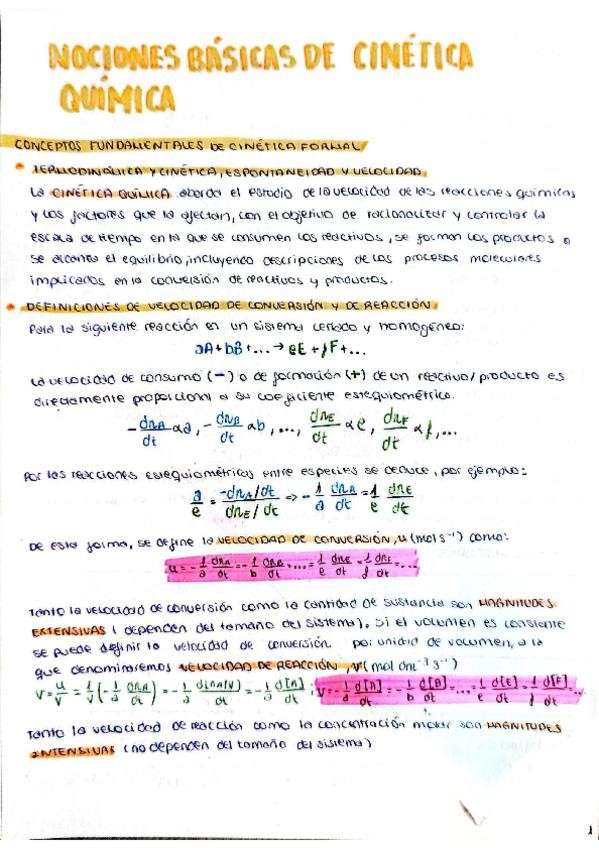 NOCIONES BÁSICAS DE CINÉTICA
QUÍMICA
CONCEPTOS FUNDAMENTALES DE CINÉTICA FORMAL
• TERMODINÁMICA Y CINÉTICA, ESPONTANEIDAD Y VELOCIDAD
La CINÉTICA QUÍMICA aborda el estudio de la velocidad de las reacciones químicas
y los factores que la afectan, con el objetivo de racionalizar y controlar la
escala de tiempo en la que se consumen los reactivos, se forman los productos o
se alcanza el equilibrio, incluyendo descripciones de los procesos moleculares
implicados en la conversión de reactivos y productos.
• DEFINICIONES DE VELOCIDAD DE CONVERSIÓN Y DE REACCIÓN
Para la siguiente reacción en un sistema cerrado y homogéneo:
aA + bB + ... → eE + fF + ...
La velocidad de consumo (-) o de formación (+) de un reactivo/producto es
directamente proporcional a su coeficiente estequiométrico.
-dnA/dt ∝ a, -dnB/dt ∝ b, ..., dnE/dt ∝ e, dnF/dt ∝ f, ...
Por las reacciones estequiométricas entre especies se deduce, por ejemplo:
a/e = (-dnA/dt)/(dnE/dt) => -1/a dnA/dt = 1/e dnE/dt
De esta forma, se define la VELOCIDAD DE CONVERSIÓN, u (mol s⁻¹) como:
u = -1/a dnA/dt = -1/b dnB/dt = ... = 1/e dnE/dt = 1/f dnF/dt = ...
Tanto la velocidad de conversión como la cantidad de sustancia son MAGNITUDES
EXTENSIVAS (dependen del tamaño del sistema). Si el volumen es constante
se puede definir la velocidad de conversión por unidad de volumen, a la
que denominaremos VELOCIDAD DE REACCIÓN, v (mol dm⁻³ s⁻¹)
v = u/V = 1/V (-1/a dnA/dt) = -1/a d(nA/V)/dt = -1/a d[A]/dt ; v = -1/a d[A]/dt = -1/b d[B]/dt = ... = 1/e d[E]/dt = 1/f d[F]/dt = ...
Tanto la velocidad de reacción como la concentración molar son MAGNITUDES
INTENSIVAS (no dependen del tamaño del sistema)
1